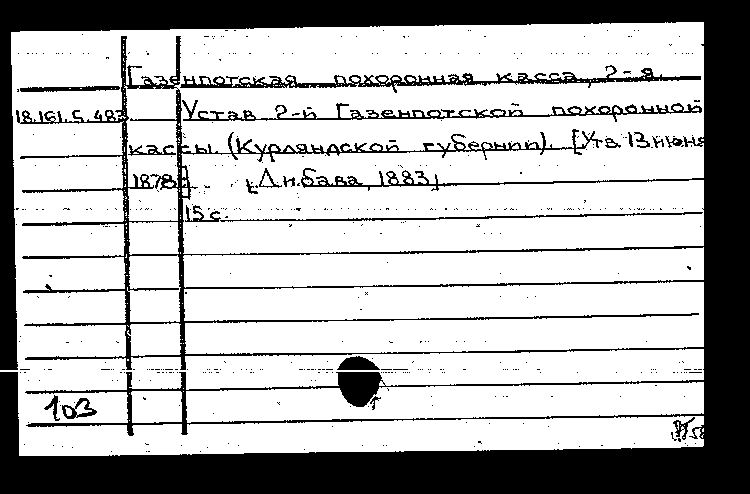 Газенпотская похоронная касса, 2-я.
18.161.5.483 Устав 2-й Газенпотской похоронной
кассы. (Курляндской губернии). [Утв. 13 июня
1878]. [Либава, 1883]
15 с.
103